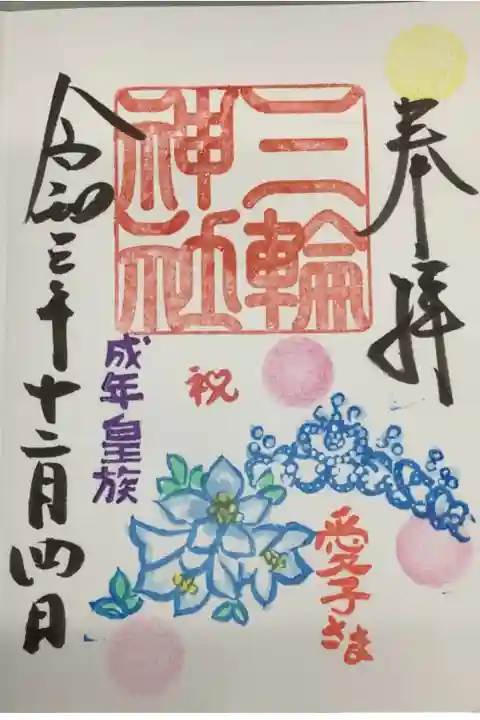 奉拝
三輪
神社
祝
成年皇族
愛子さま
令和三年十二月四日